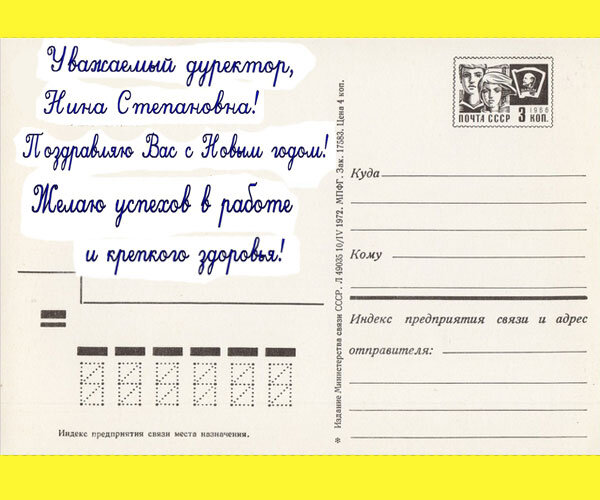 Уважаемый дуректор,
Нина Степановна!
Поздравляю Вас с Новым годом!
Желаю успехов в работе
и крепкого здоровья!
1966
ПОЧТА СССР 3 КОП.
Куда
Кому
Индекс предприятия связи и адрес
отправителя:
Индекс предприятия связи места назначения.
* Издание Министерства связи СССР. Л 49035 10/IV 1972. МПФГ. Зак. 17583. Цена 4 коп.